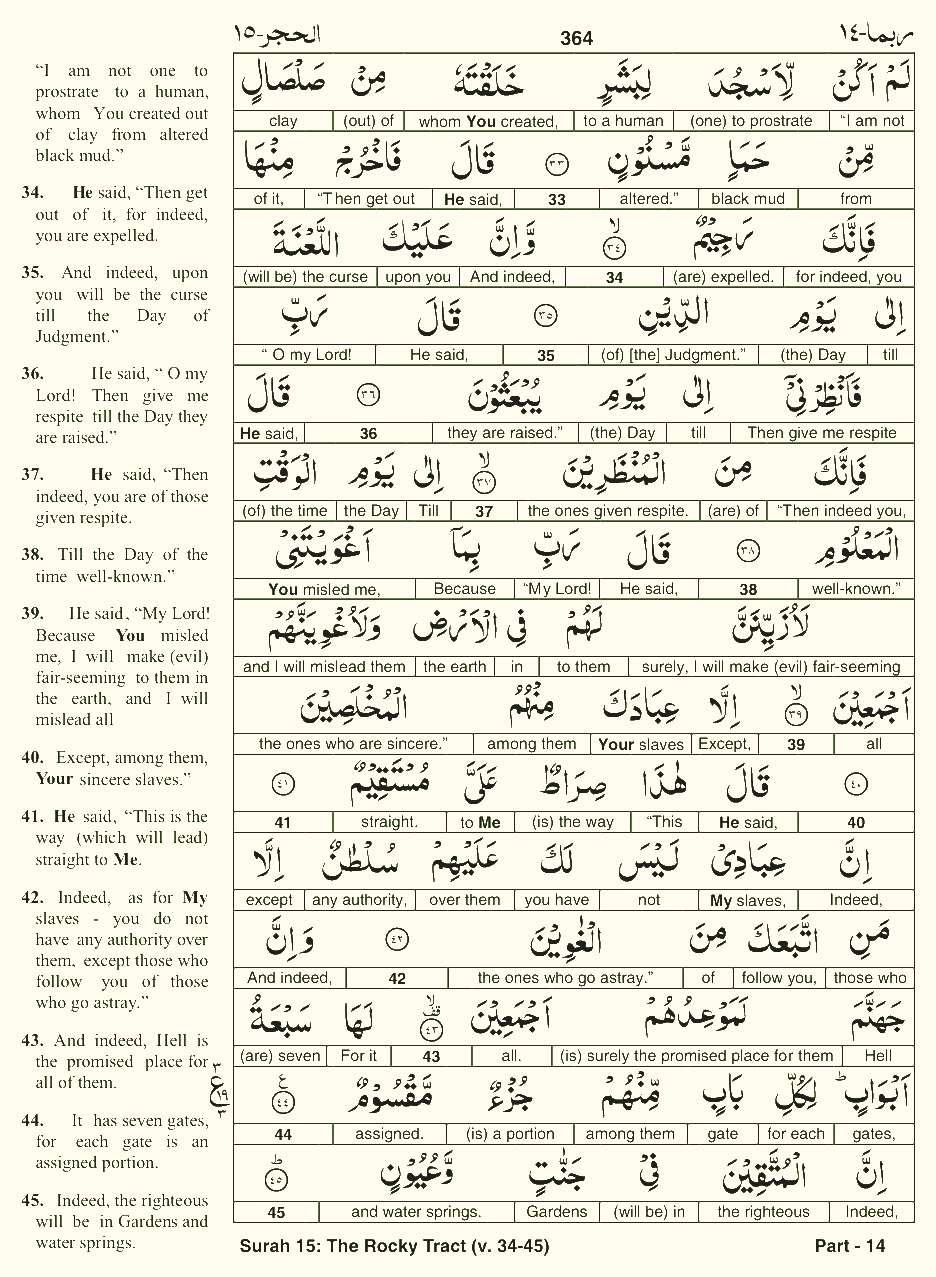 الحجر-١٥ 364 ربما-١٤
“I am not one to
prostrate to a human,
whom You created out
of clay from altered
black mud.”
34. He said, “Then get
out of it, for indeed,
you are expelled.
35. And indeed, upon
you will be the curse
till the Day of
Judgment.”
36. He said, “ O my
Lord! Then give me
respite till the Day they
are raised.”
37. He said, “Then
indeed, you are of those
given respite.
38. Till the Day of the
time well-known.”
39. He said, “My Lord!
Because You misled
me, I will make (evil)
fair-seeming to them in
the earth, and I will
mislead all
40. Except, among them,
Your sincere slaves.”
41. He said, “This is the
way (which will lead)
straight to Me.
42. Indeed, as for My
slaves - you do not
have any authority over
them, except those who
follow you of those
who go astray.”
43. And indeed, Hell is
the promised place for
all of them.
44. It has seven gates,
for each gate is an
assigned portion.
45. Indeed, the righteous
will be in Gardens and
water springs.
لَمْ اَكُنْ لِّاَسْجُدَ لِبَشَرٍ خَلَقْتَهٗ مِنْ صَلْصَالٍ
clay (out) of whom You created, to a human (one) to prostrate “I am not
مِّنْ حَمَاٍ مَّسْنُوْنٍ ٣٣ قَالَ فَاخْرُجْ مِنْهَا
of it, “Then get out He said, 33 altered.” black mud from
فَاِنَّكَ رَجِيْمٌ ۙ٣٤ وَّاِنَّ عَلَيْكَ اللَّعْنَةَ
(will be) the curse upon you And indeed, 34 (are) expelled. for indeed, you
اِلٰى يَوْمِ الدِّيْنِ ٣٥ قَالَ رَبِّ
“ O my Lord! He said, 35 (of) [the] Judgment.” (the) Day till
فَاَنْظِرْنِيْٓ اِلٰى يَوْمِ يُبْعَثُوْنَ ٣٦ قَالَ
He said, 36 they are raised.” (the) Day till Then give me respite
فَاِنَّكَ مِنَ الْمُنْظَرِيْنَ ۙ٣٧ اِلٰى يَوْمِ الْوَقْتِ
(of) the time the Day Till 37 the ones given respite. (are) of “Then indeed you,
الْمَعْلُوْمِ ٣٨ قَالَ رَبِّ بِمَآ اَغْوَيْتَنِيْ
You misled me, Because “My Lord! He said, 38 well-known.”
لَاُزَيِّنَنَّ لَهُمْ فِي الْاَرْضِ وَلَاُغْوِيَنَّهُمْ
and I will mislead them the earth in to them surely, I will make (evil) fair-seeming
اَجْمَعِيْنَ ۙ٣٩ اِلَّا عِبَادَكَ مِنْهُمُ الْمُخْلَصِيْنَ
the ones who are sincere.” among them Your slaves Except, 39 all
٤٠ قَالَ هٰذَا صِرَاطٌ عَلَيَّ مُسْتَقِيْمٌ ٤١
41 straight. to Me (is) the way “This He said, 40
اِنَّ عِبَادِيْ لَيْسَ لَكَ عَلَيْهِمْ سُلْطٰنٌ اِلَّا
except any authority, over them you have not My slaves, Indeed,
مَنِ اتَّبَعَكَ مِنَ الْغٰوِيْنَ ٤٢ وَاِنَّ
And indeed, 42 the ones who go astray.” of follow you, those who
جَهَنَّمَ لَمَوْعِدُهُمْ اَجْمَعِيْنَ ۙقف٤٣ لَهَا سَبْعَةُ
(are) seven For it 43 all. (is) surely the promised place for them Hell
اَبْوَابٍ ؕ لِكُلِّ بَابٍ مِّنْهُمْ جُزْءٌ مَّقْسُوْمٌ ع٤٤ ٣ ع ١٩ ٣
44 assigned. (is) a portion among them gate for each gates,
اِنَّ الْمُتَّقِيْنَ فِيْ جَنّٰتٍ وَّعُيُوْنٍ ؕ٤٥
45 and water springs. Gardens (will be) in the righteous Indeed,
Surah 15: The Rocky Tract (v. 34-45) Part - 14